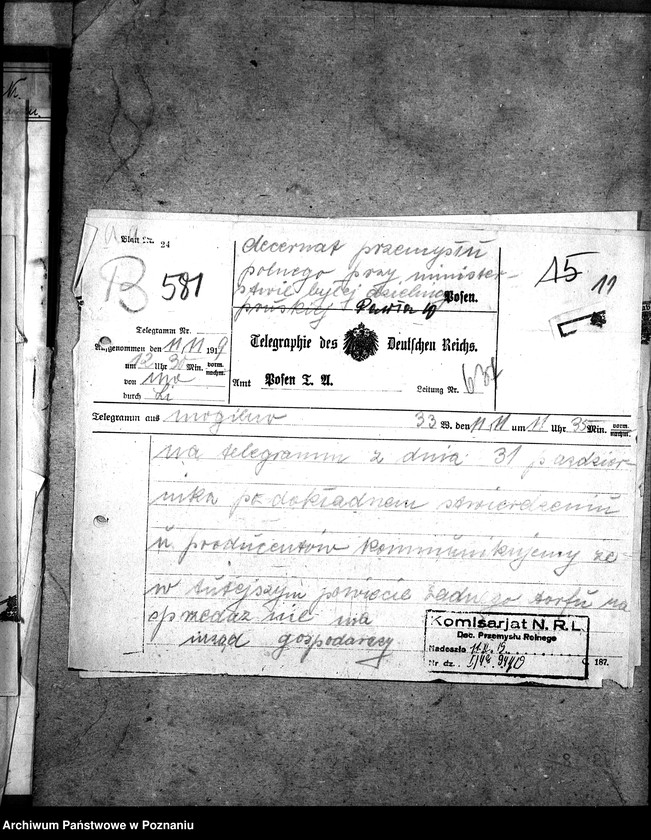 Blatt Nr. 24
decernat przemysłu
rolnego przy minister-
stwie byłej dzielnicy
pruskiej Posen.
B 581
15 11
Telegramm Nr.
Aufgenommen den 11/11 1919
um 12 Uhr 30 Min. vorm. nachm.
von
durch
Telegraphie des Deutschen Reichs.
Amt Posen T. A.
Leitung Nr.
Telegramm aus mogilno 33 W. den 11/11 um 11 Uhr 35 Min. vorm. nachm.
na telegramm z dnia 31 pazdzier-
nika po dokładnem stwierdzeniu
u producentów kommunikujemy ze
w tutejszym powiecie zadnego torfu na
sprzedaz nie ma
urząd gospodarczy
Komisarjat N. R. L.
Dec. Przemysłu Rolnego
Nadeszło 11.XI.19.
Nr dz.
C. 187.
Archiwum Państwowe w Poznaniu